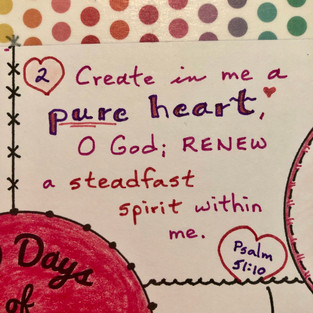 2 Create in me a
pure heart,
O God; RENEW
a steadfast
spirit within
me.
Psalm
51:10
Days
of